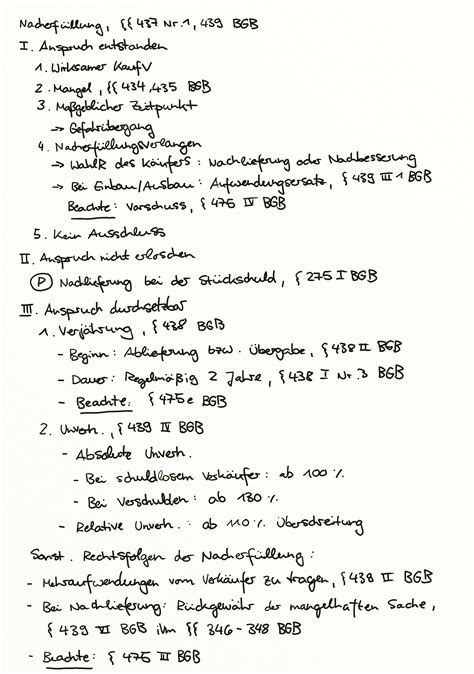 Nacherfüllung, §§ 437 Nr. 1, 439 BGB
I. Anspruch entstanden
1. Wirksamer KaufV
2. Mangel, §§ 434, 435 BGB
3. Maßgeblicher Zeitpunkt
→ Gefahrübergang
4. Nacherfüllungsverlangen
→ WahlR des Käufers: Nachlieferung oder Nachbesserung
→ Bei Einbau/Ausbau: Aufwendungsersatz, § 439 III 1 BGB
Beachte: Vorschuss, § 475 IV BGB
5. Kein Ausschluss
II. Anspruch nicht erloschen
(P) Nachlieferung bei der Stückschuld, § 275 I BGB
III. Anspruch durchsetzbar
1. Verjährung, § 438 BGB
- Beginn: Ablieferung bzw. Übergabe, § 438 II BGB
- Dauer: Regelmäßig 2 Jahre, § 438 I Nr. 3 BGB
- Beachte: § 475e BGB
2. Unverh., § 439 IV BGB
- Absolute Unverh.
- Bei schuldlosem Verkäufer: ab 100 %
- Bei Verschulden: ab 130 %
- Relative Unverh.: ab 110 % Überschreitung
Sonst. Rechtsfolgen der Nacherfüllung:
- Mehraufwendungen vom Verkäufer zu tragen, § 439 II BGB
- Bei Nachlieferung: Rückgewähr der mangelhaften Sache,
§ 439 VI BGB iVm §§ 346-348 BGB
- Beachte: § 475 III BGB